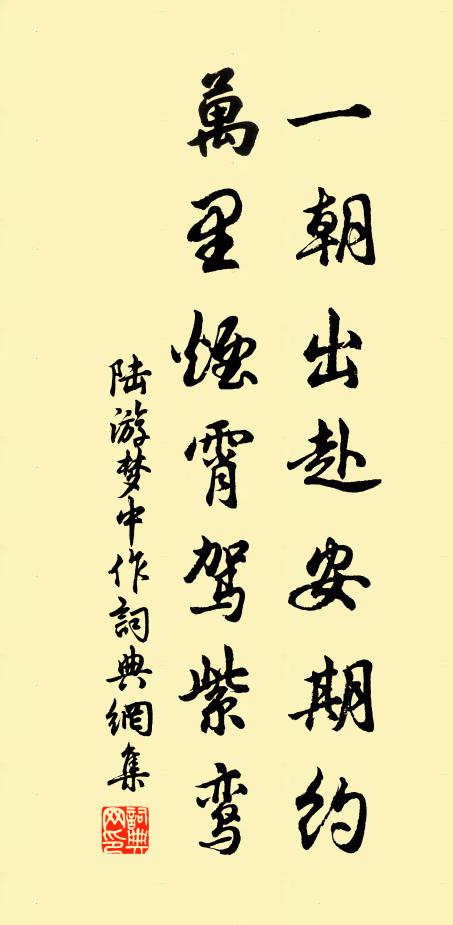 一朝出赴安期约
萬里煙霄驾紫鸾
陆游梦中作詞典網集
詞典
网印